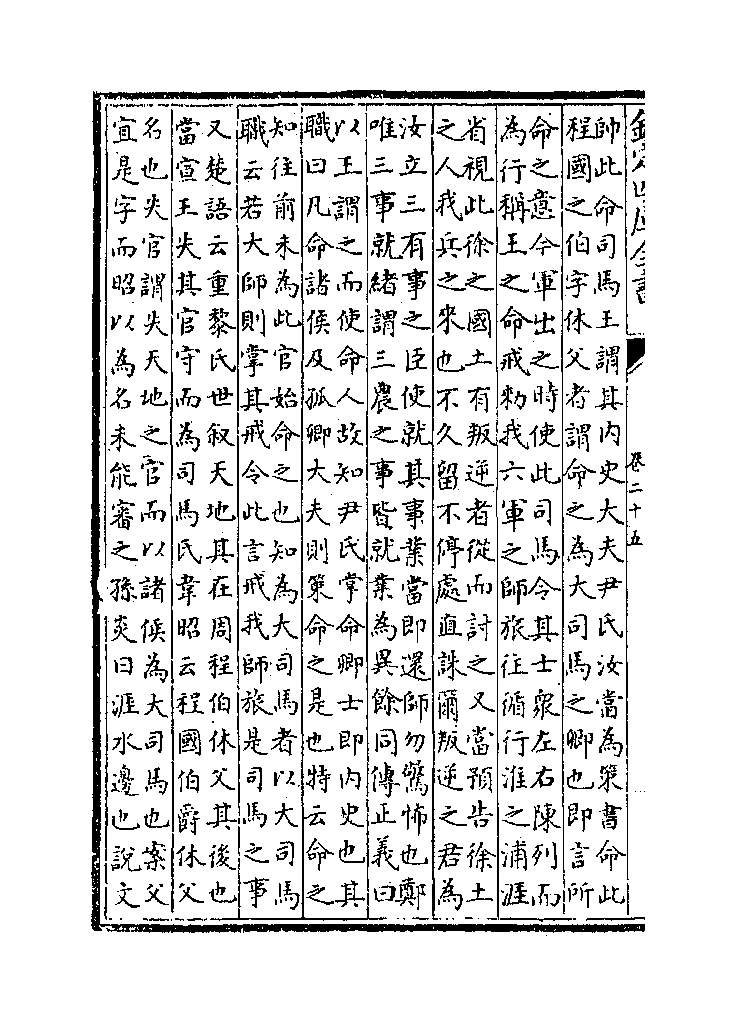 欽定四庫全書
卷二十五
帥此命司馬王謂其内史大夫尹氏汝當為䇿書命此
程國之伯字休父者謂命之為大司馬之卿也即言所
命之意今軍出之時使此司馬令其士衆左右陳列而
為行稱王之命戒勑我六軍之師旅往循行淮之浦涯
省視此徐之國土有叛逆者從而討之又當預告徐土
之人我兵之來也不久留不停處直誅爾叛逆之君為
汝立三有事之臣使就其事業當即還師勿驚怖也鄭
唯三事就緒謂三農之事皆就業為異餘同傳正義曰
以王謂之而使命人故知尹氏掌命卿士即内史也其
職曰凡命諸侯及孤卿大夫則策命之是也特云命之
知往前未為此官始命之也知為大司馬者以大司馬
職云若大師則掌其戒令此言戒我師旅是司馬之事
又楚語云重黎氏世叙天地其在周程伯休父其後也
當宣王失其官守而為司馬氏韋昭云程國伯爵休父
名也失官謂失天地之官而以諸侯為大司馬也案父
宜是字而昭以為名未能審之孫炎曰涯水邊也説文